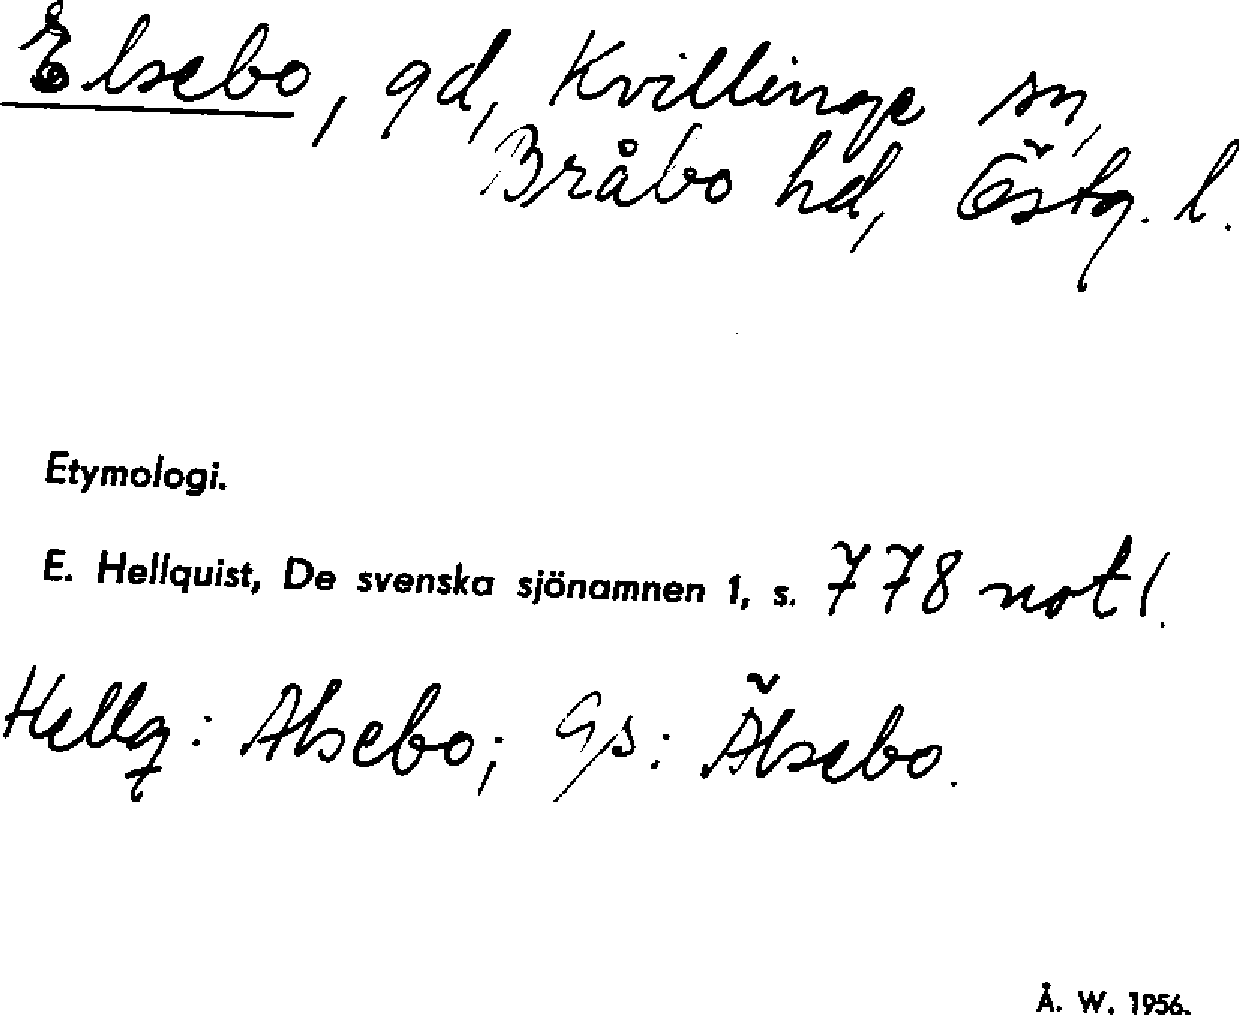 Elsebo, gd, Kvillinge sn,
Bråbo hd, Östg. l.
Etymologi.
E. Hellquist, De svenska sjönamnen 1, s. 778 not 1.
Hellq: Alsebo; Gs: Älsebo.
Å. W. 1956.